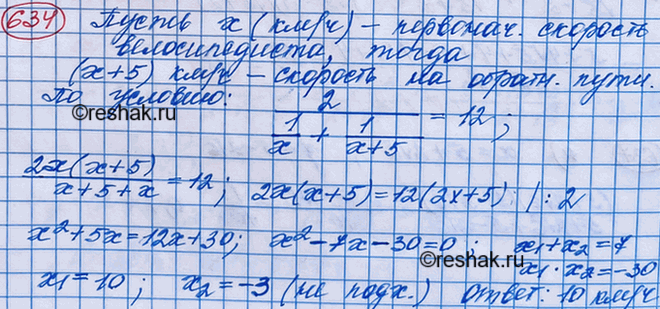 634 Пусть x (км/ч) – первонач. скорость
велосипедиста, тогда
(x+5) км/ч – скорость на обратн. пути.
По условию: 2/(1/x + 1/(x+5)) = 12;
©reshak.ru
2x(x+5)/(x+5+x) = 12; 2x(x+5)=12(2x+5) |:2
x²+5x=12x+30; x²-7x-30=0; x₁+x₂=7
x₁·x₂=-30
x₁=10; x₂=-3 (не подх.) Ответ: 10 км/ч
©reshak.ru